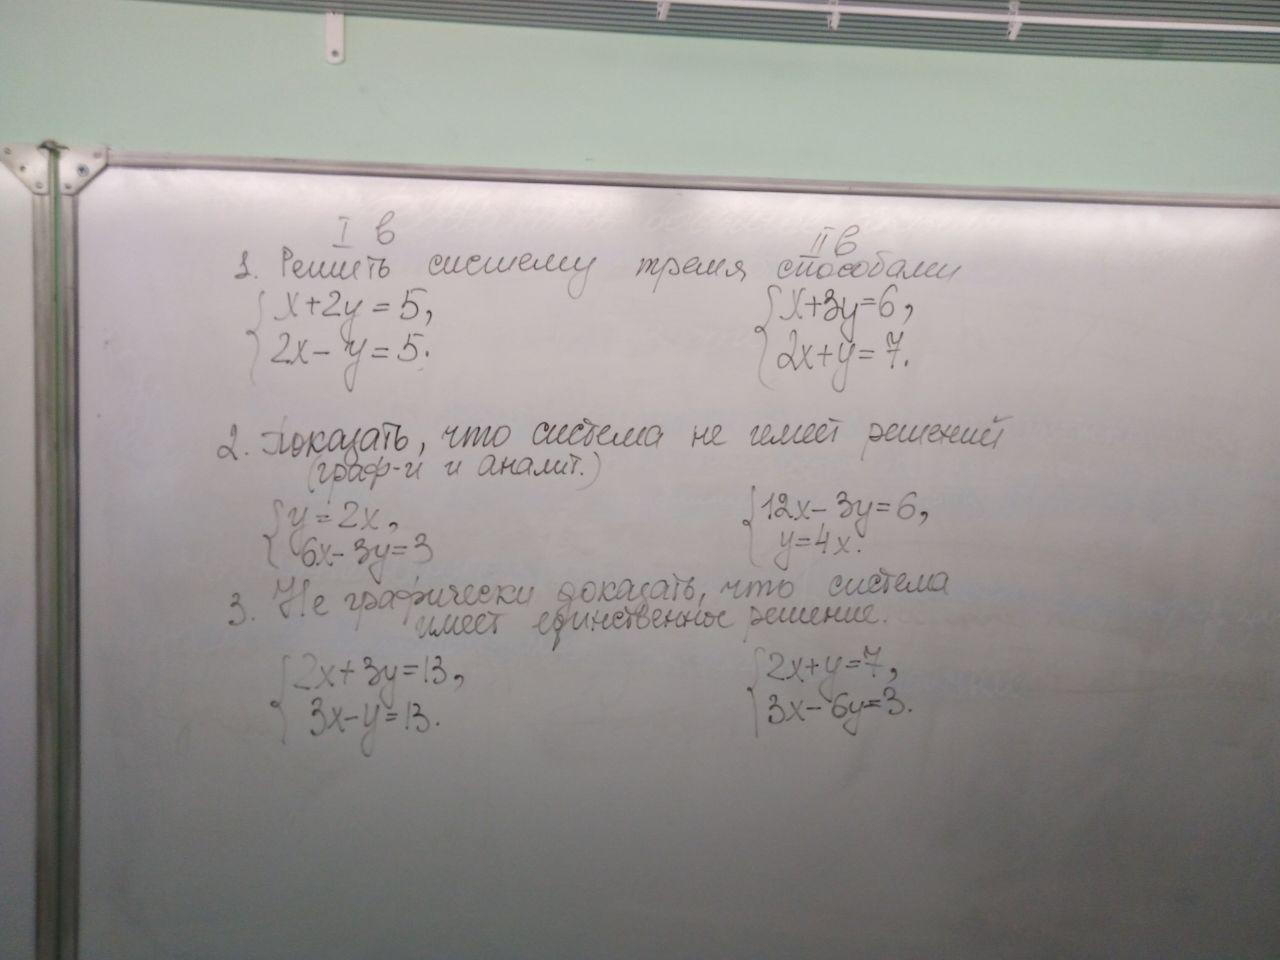 I в II в
1. Решить систему тремя способами
x+2y=5, x+3y=6,
2x-y=5. 2x+y=7.
2. Показать, что система не имеет решений
(граф-и и аналит.)
y=2x, 12x-3y=6,
6x-3y=3 y=4x.
3. Не графически доказать, что система
имеет единственное решение.
2x+3y=13, 2x+y=7,
3x-y=13. 3x-6y=3.